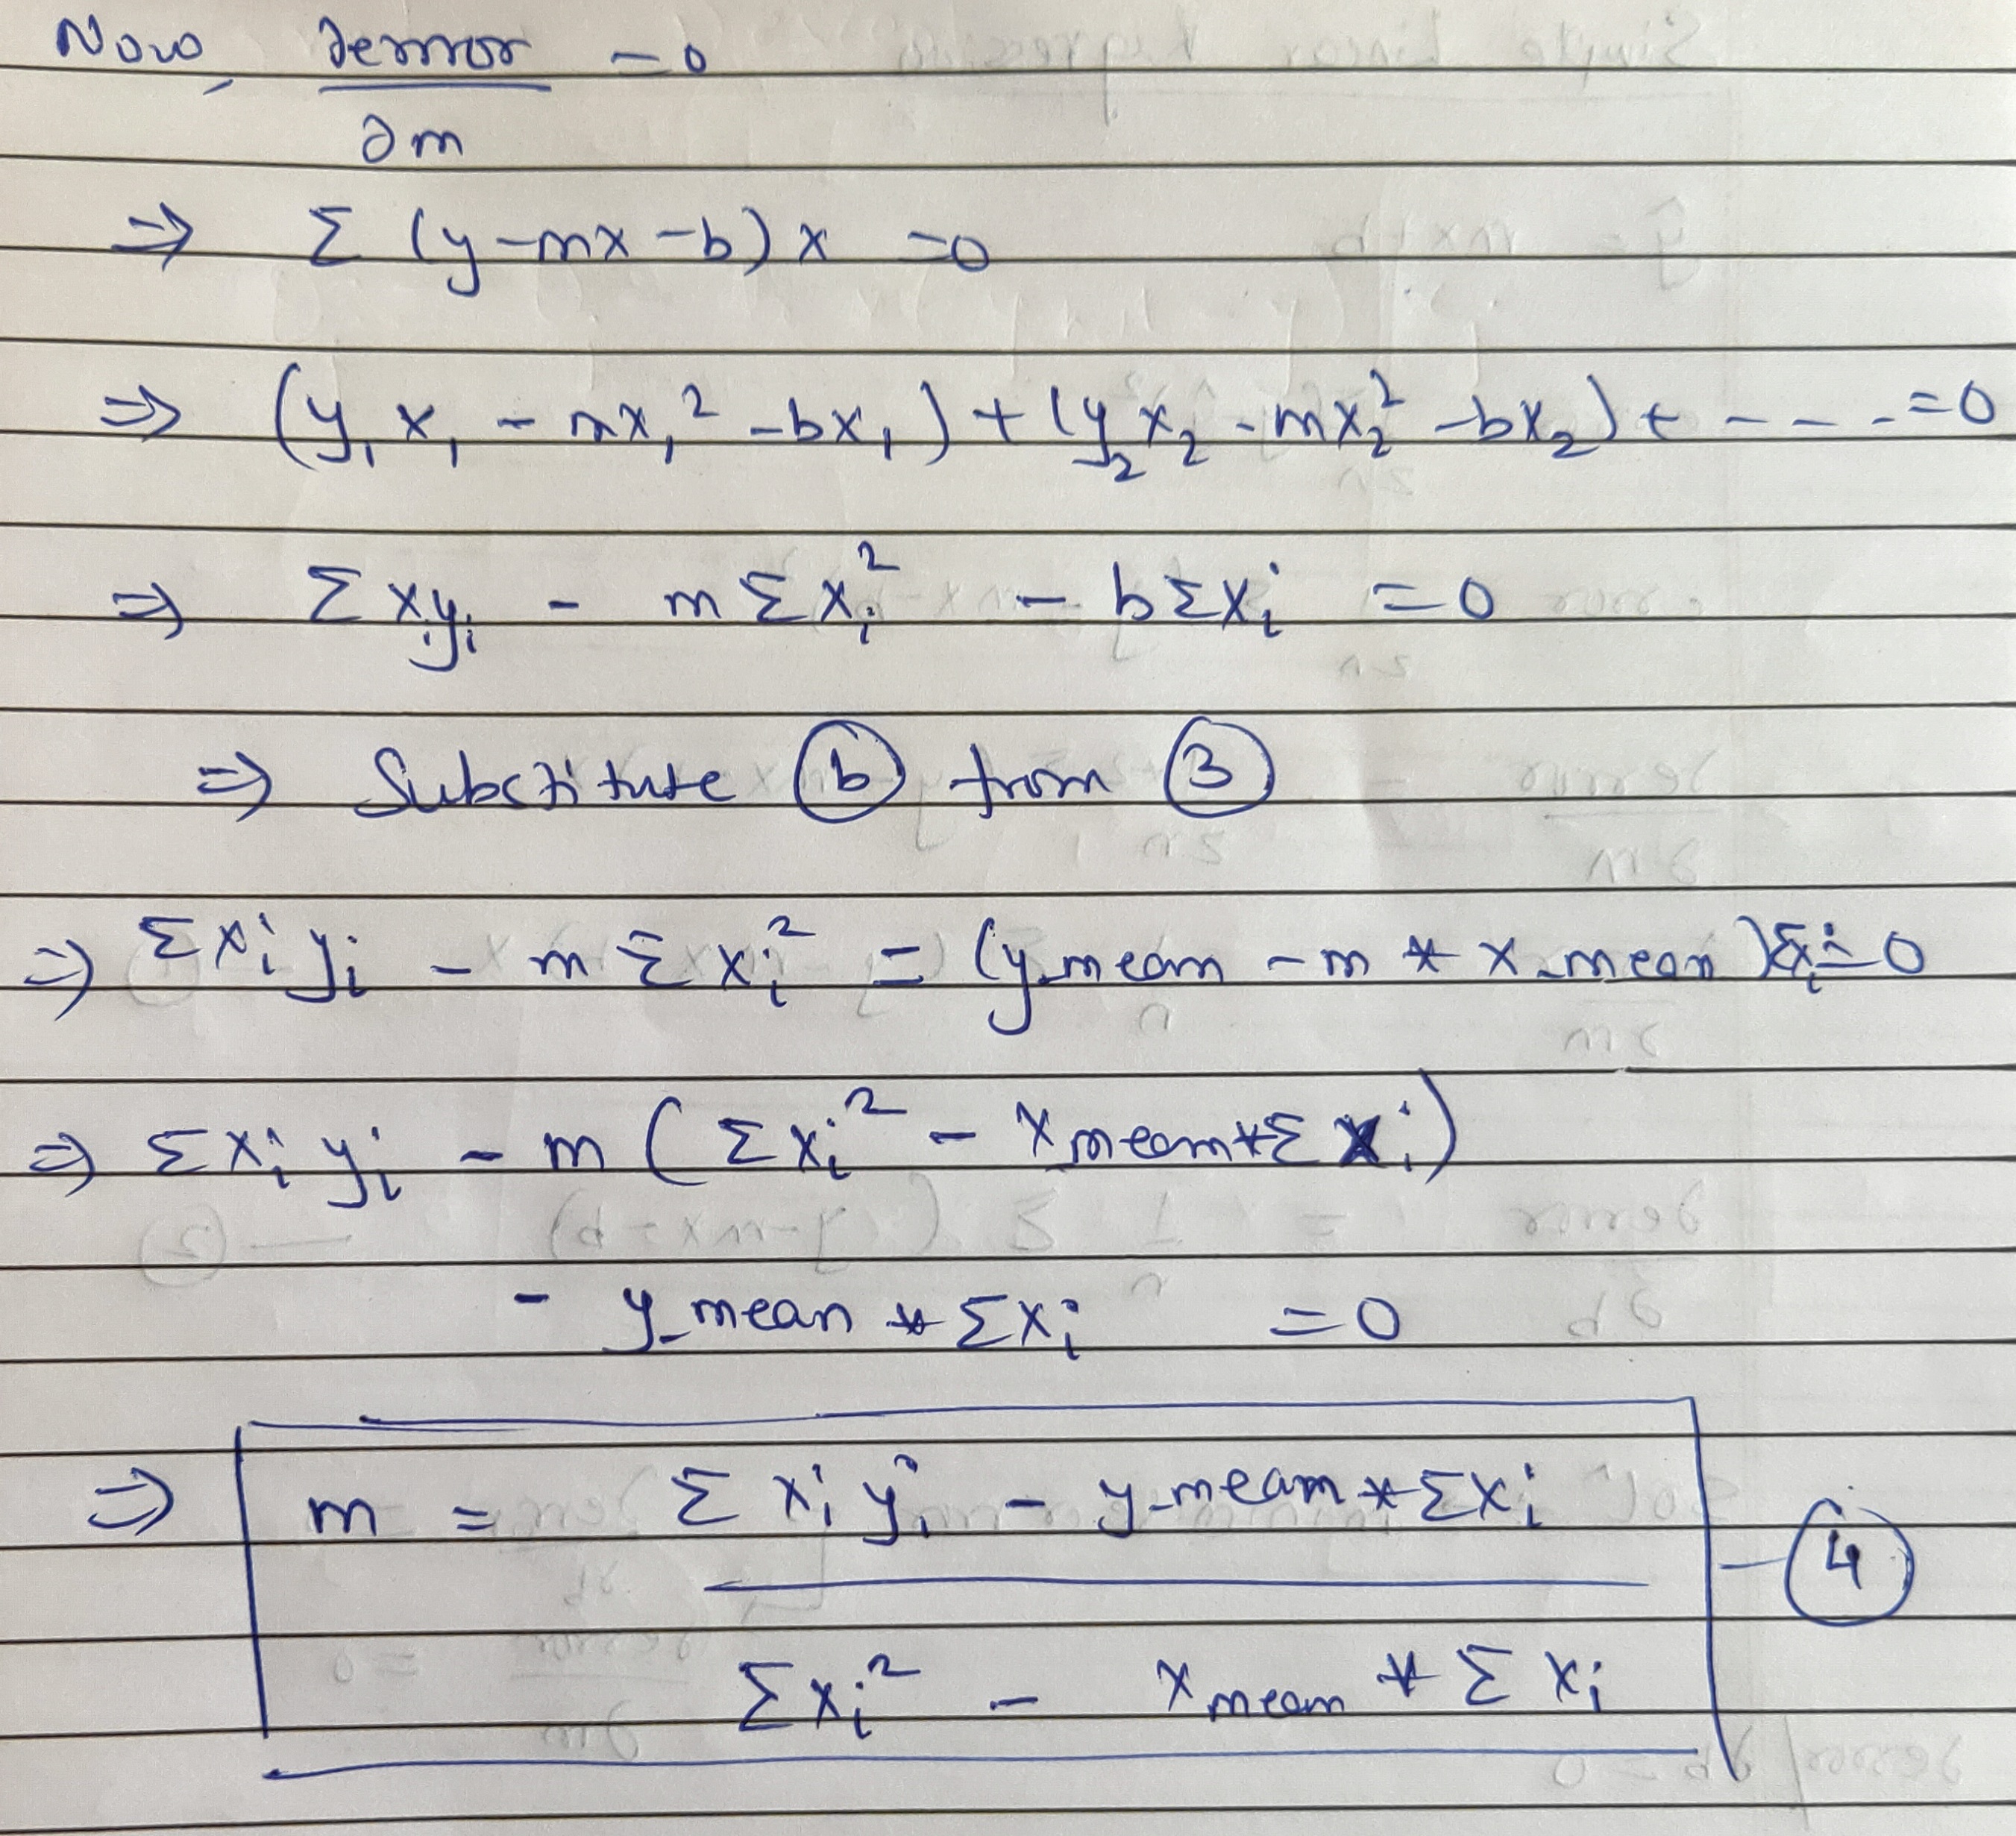 Now, ∂error/∂m = 0
⇒ Σ (y - mx - b) x = 0
⇒ (y₁x₁ - mx₁² - bx₁) + (y₂x₂ - mx₂² - bx₂) + - - - - = 0
⇒ Σxᵢyᵢ - mΣxᵢ² - bΣxᵢ = 0
⇒ Substitute (b) from (3)
⇒ Σxᵢyᵢ - mΣxᵢ² = (y_mean - m * x_mean)Σxᵢ = 0
⇒ Σxᵢyᵢ - m (Σxᵢ² - xmean*Σxᵢ)
- y_mean * Σxᵢ = 0
⇒ m = Σxᵢyᵢ - y_mean * Σxᵢ — (4)
Σxᵢ² - xmean * Σxᵢ